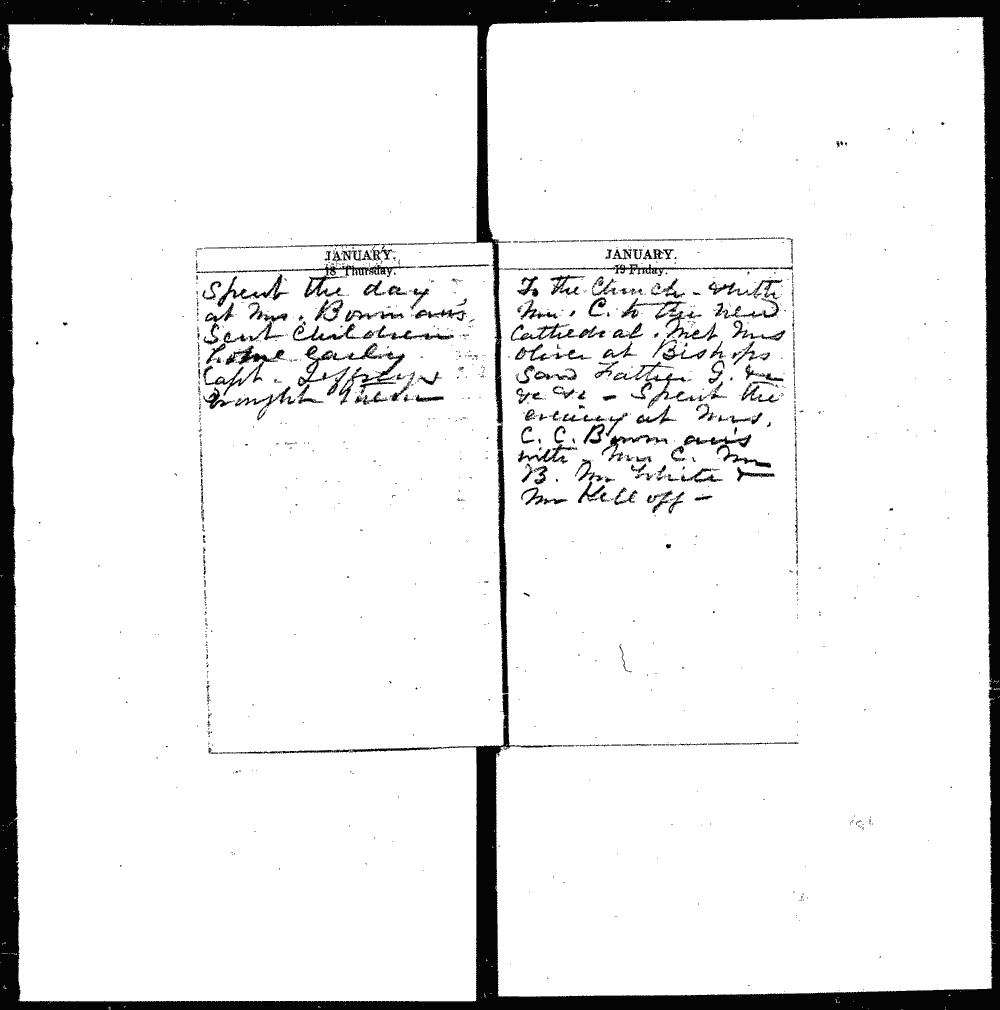 JANUARY.
18 Thursday.
Spent the day
at Mrs. Bowman's
Sent Children
home early
Capt. Jeffreys
brought them
JANUARY.
19 Friday.
To the Church - with
Mrs. C. to the new
Cathedral. Met Mrs
Oliver at Bishops
Saw Father J. &c
&c &c - Spent the
evening at Mrs.
C. C. Bowman's
with Mrs C. Mrs
B. Mr White &
Mr Kelloff -